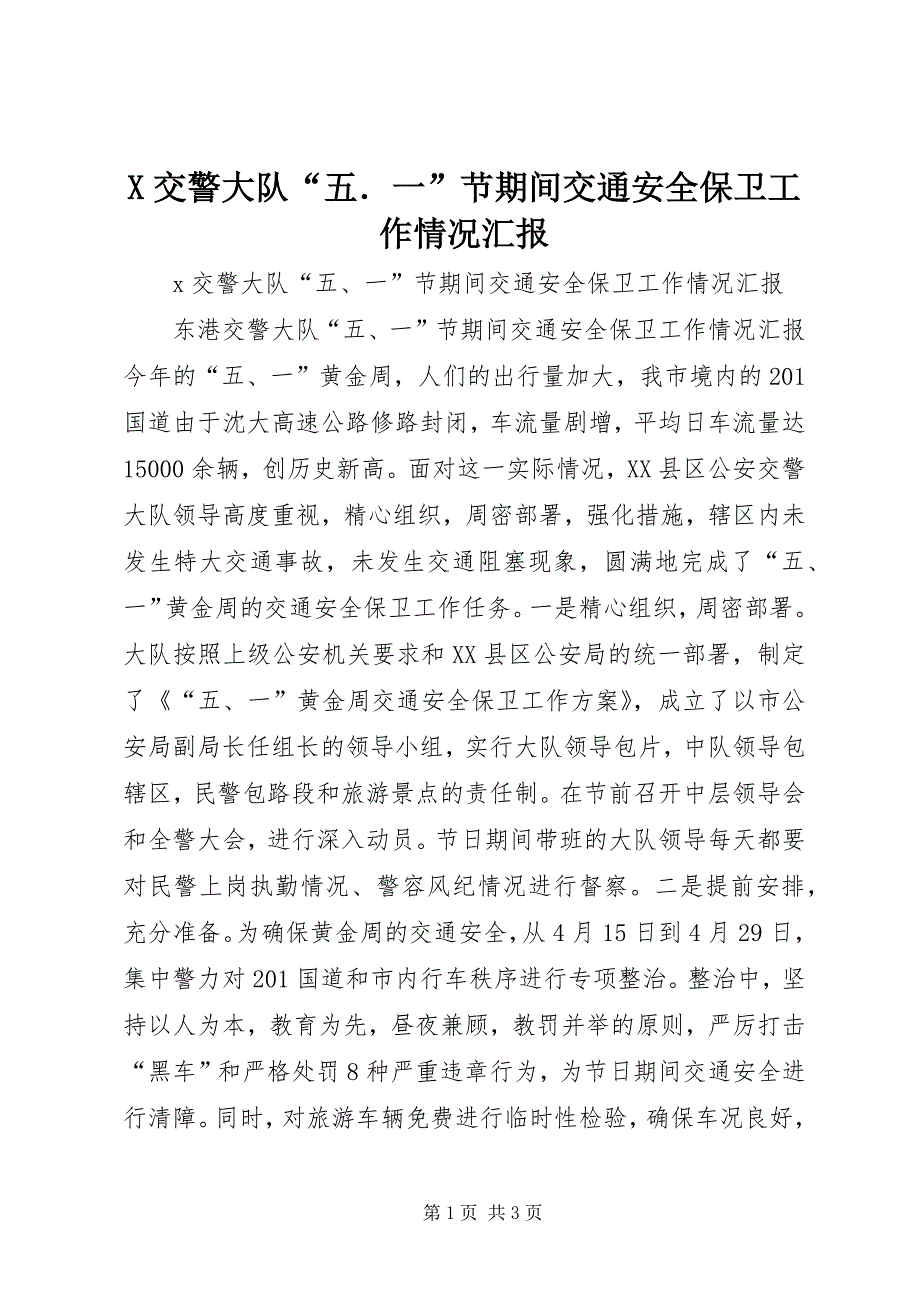 X 交警大队“五．一”节期间交通安全保卫工
作情况汇报
x 交警大队“五、一”节期间交通安全保卫工作情况汇报
东港交警大队“五、一”节期间交通安全保卫工作情况汇报
今年的“五、一”黄金周，人们的出行量加大，我市境内的 201
国道由于沈大高速公路修路封闭，车流量剧增，平均日车流量达
15000 余辆，创历史新高。面对这一实际情况，XX 县区公安交警
大队领导高度重视，精心组织，周密部署，强化措施，辖区内未
发生特大交通事故，未发生交通阻塞现象，圆满地完成了“五、
一”黄金周的交通安全保卫工作任务。一是精心组织，周密部署。
大队按照上级公安机关要求和 XX 县区公安局的统一部署，制定
了《“五、一”黄金周交通安全保卫工作方案》，成立了以市公
安局副局长任组长的领导小组，实行大队领导包片，中队领导包
辖区，民警包路段和旅游景点的责任制。在节前召开中层领导会
和全警大会，进行深入动员。节日期间带班的大队领导每天都要
对民警上岗执勤情况、警容风纪情况进行督察。二是提前安排，
充分准备。为确保黄金周的交通安全，从 4 月 15 日到 4 月 29 日，
集中警力对 201 国道和市内行车秩序进行专项整治。整治中，坚
持以人为本，教育为先，昼夜兼顾，教罚并举的原则，严厉打击
“黑车”和严格处罚 8 种严重违章行为，为节日期间交通安全进
行清障。同时，对旅游车辆免费进行临时性检验，确保车况良好，
第 1 页 共 3 页